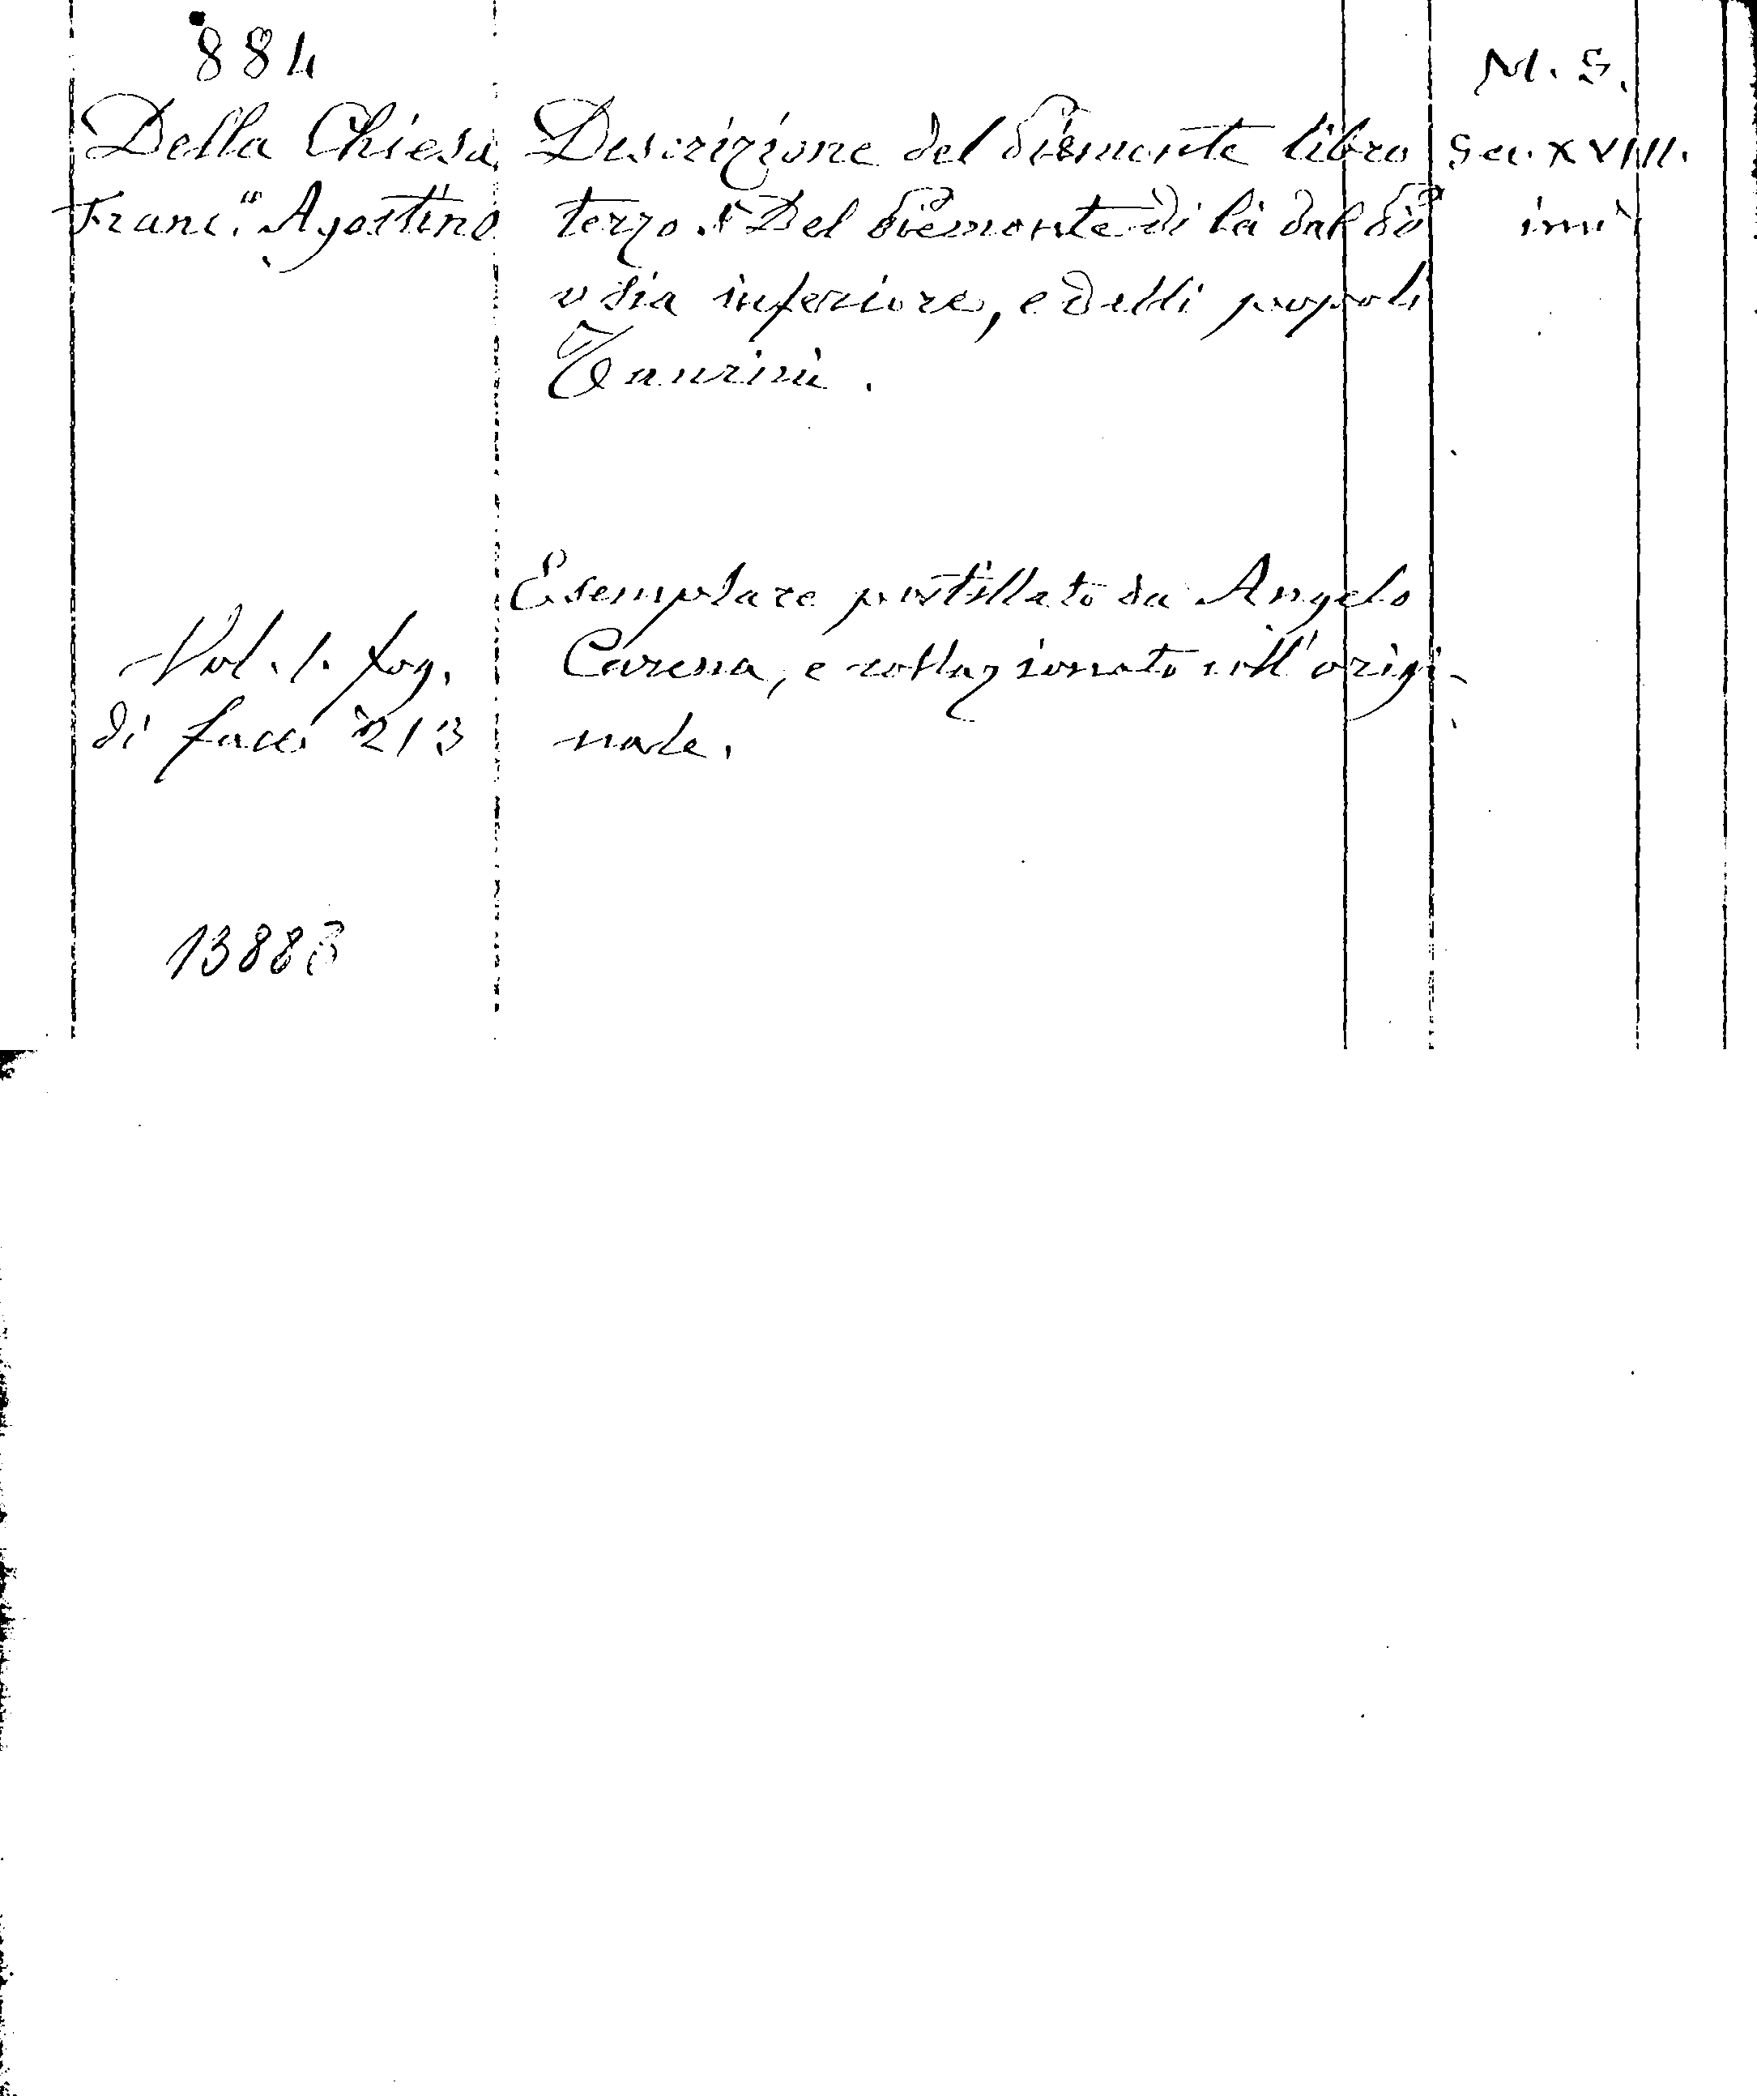 884
M. S.
Della Chiesa
Franc.º Agostino
Descrizione del Piemonte libro
terzo. Del Piemonte di là dal Pò
o sia inferiore, e delli popoli
Taurini.
Sec. XVIII.
Vol. 1. fog.
di facc. 213
Esemplare postillato da Angelo
Carena, e collazionato coll'origi-
nale.
13888